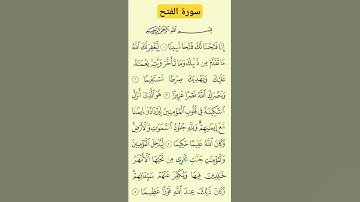 سورة الفتح
بسم الله الرحمن الرحيم
إِنَّا فَتَحْنَا لَكَ فَتْحًا مُّبِينًا ١ لِّيَغْفِرَ لَكَ اللَّهُ
مَا تَقَدَّمَ مِن ذَنبِكَ وَمَا تَأَخَّرَ وَيُتِمَّ نِعْمَتَهُ
عَلَيْكَ وَيَهْدِيَكَ صِرَاطًا مُّسْتَقِيمًا ٢
وَيَنصُرَكَ اللَّهُ نَصْرًا عَزِيزًا ٣ هُوَ الَّذِي أَنزَلَ
السَّكِينَةَ فِي قُلُوبِ الْمُؤْمِنِينَ لِيَزْدَادُوا إِيمَانًا
مَّعَ إِيمَانِهِمْ وَلِلَّهِ جُنُودُ السَّمَاوَاتِ وَالْأَرْضِ
وَكَانَ اللَّهُ عَلِيمًا حَكِيمًا ٤ لِّيُدْخِلَ الْمُؤْمِنِينَ
وَالْمُؤْمِنَاتِ جَنَّاتٍ تَجْرِي مِن تَحْتِهَا الْأَنْهَارُ
خَالِدِينَ فِيهَا وَيُكَفِّرَ عَنْهُمْ سَيِّئَاتِهِمْ
وَكَانَ ذَٰلِكَ عِندَ اللَّهِ فَوْزًا عَظِيمًا ٥